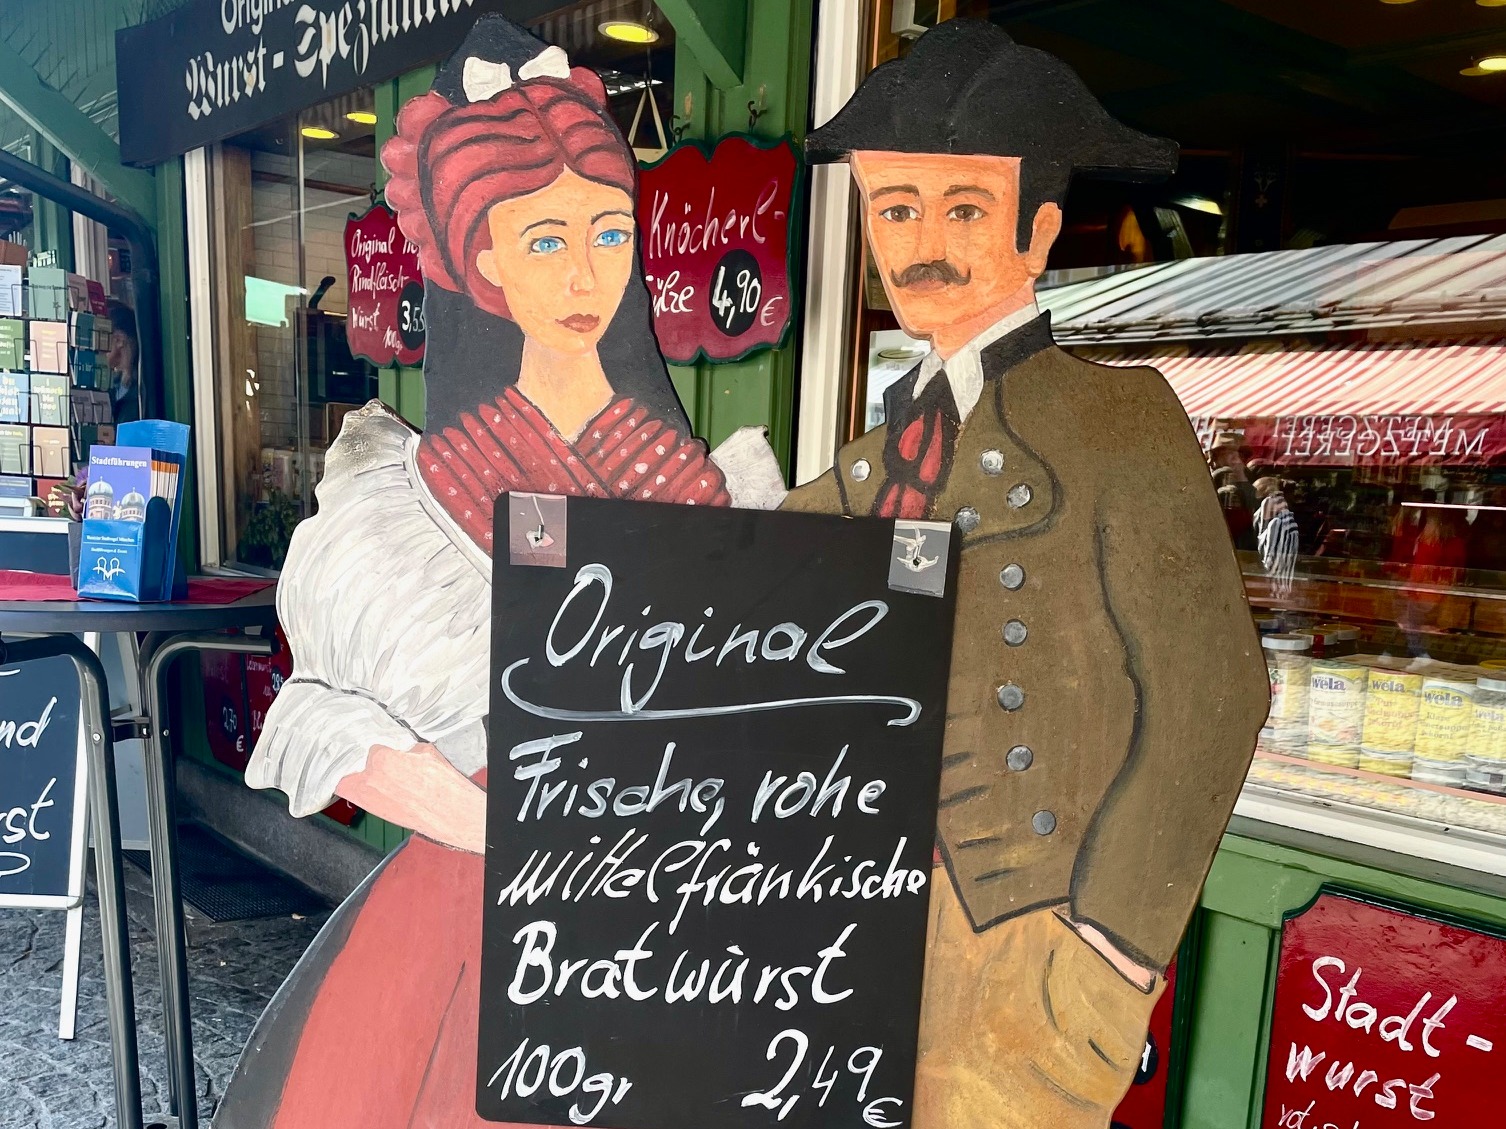 Original
Wurst - Spezialitä
Original
Rindfleisch-
wurst
100gr
3,5
Knöcherl-
sülze
4,90 €
METZGEREI
METZGEREI
Stadtführungen
Original
Frische, rohe
mittelfränkische
Bratwürst
100gr 2,49 €
wela
wela
wela
nd
rst
2,70
€
Stadt-
wurst